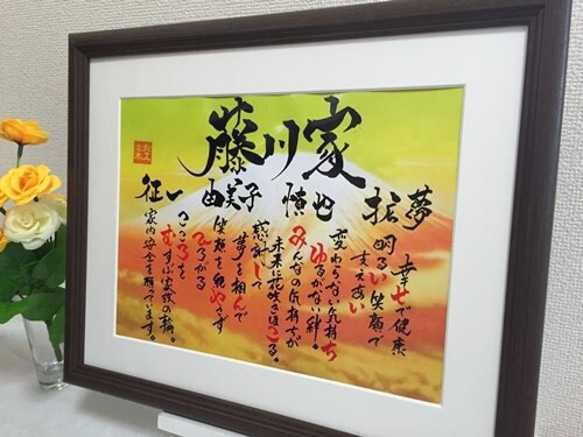 藤川家
征一 由美子 慎也 拡夢
幸せで健康
明るい笑顔で
支えあい
変わらない気持ち
ゆるがない絆。
みんなの気持ちが
未来に花咲きほこる。
感謝して
夢を掴んで
笑顔を絶やさず
ひろがる
こころを
むすぶ家族の輪。
家内安全を願っています。